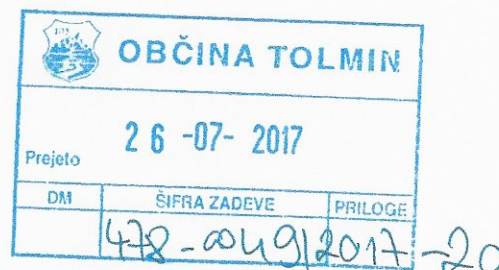 OBČINA TOLMIN
Prejeto 26 -07- 2017
DM ŠIFRA ZADEVE PRILOGE
478-0049/2017-20